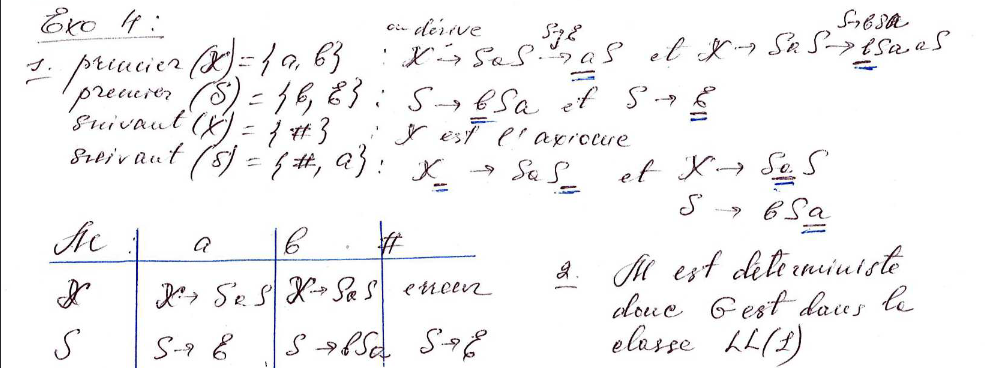 Exo 4 :
on dérive S→ε S→bSa
1. premier (X) = { a, b } : X → SaS → aS et X → SaS → bSaaS
premier (S) = { b, ε } : S → bSa et S → ε
suivant (X) = { # } : X est l'axiome
suivant (S) = { #, a } : X → SaS et X → SaS
S → bSa
M : a b #
X X → SaS X → SaS erreur
S S → ε S → bSa S → ε
2. M est déterministe
donc G est dans la
classe LL(1)